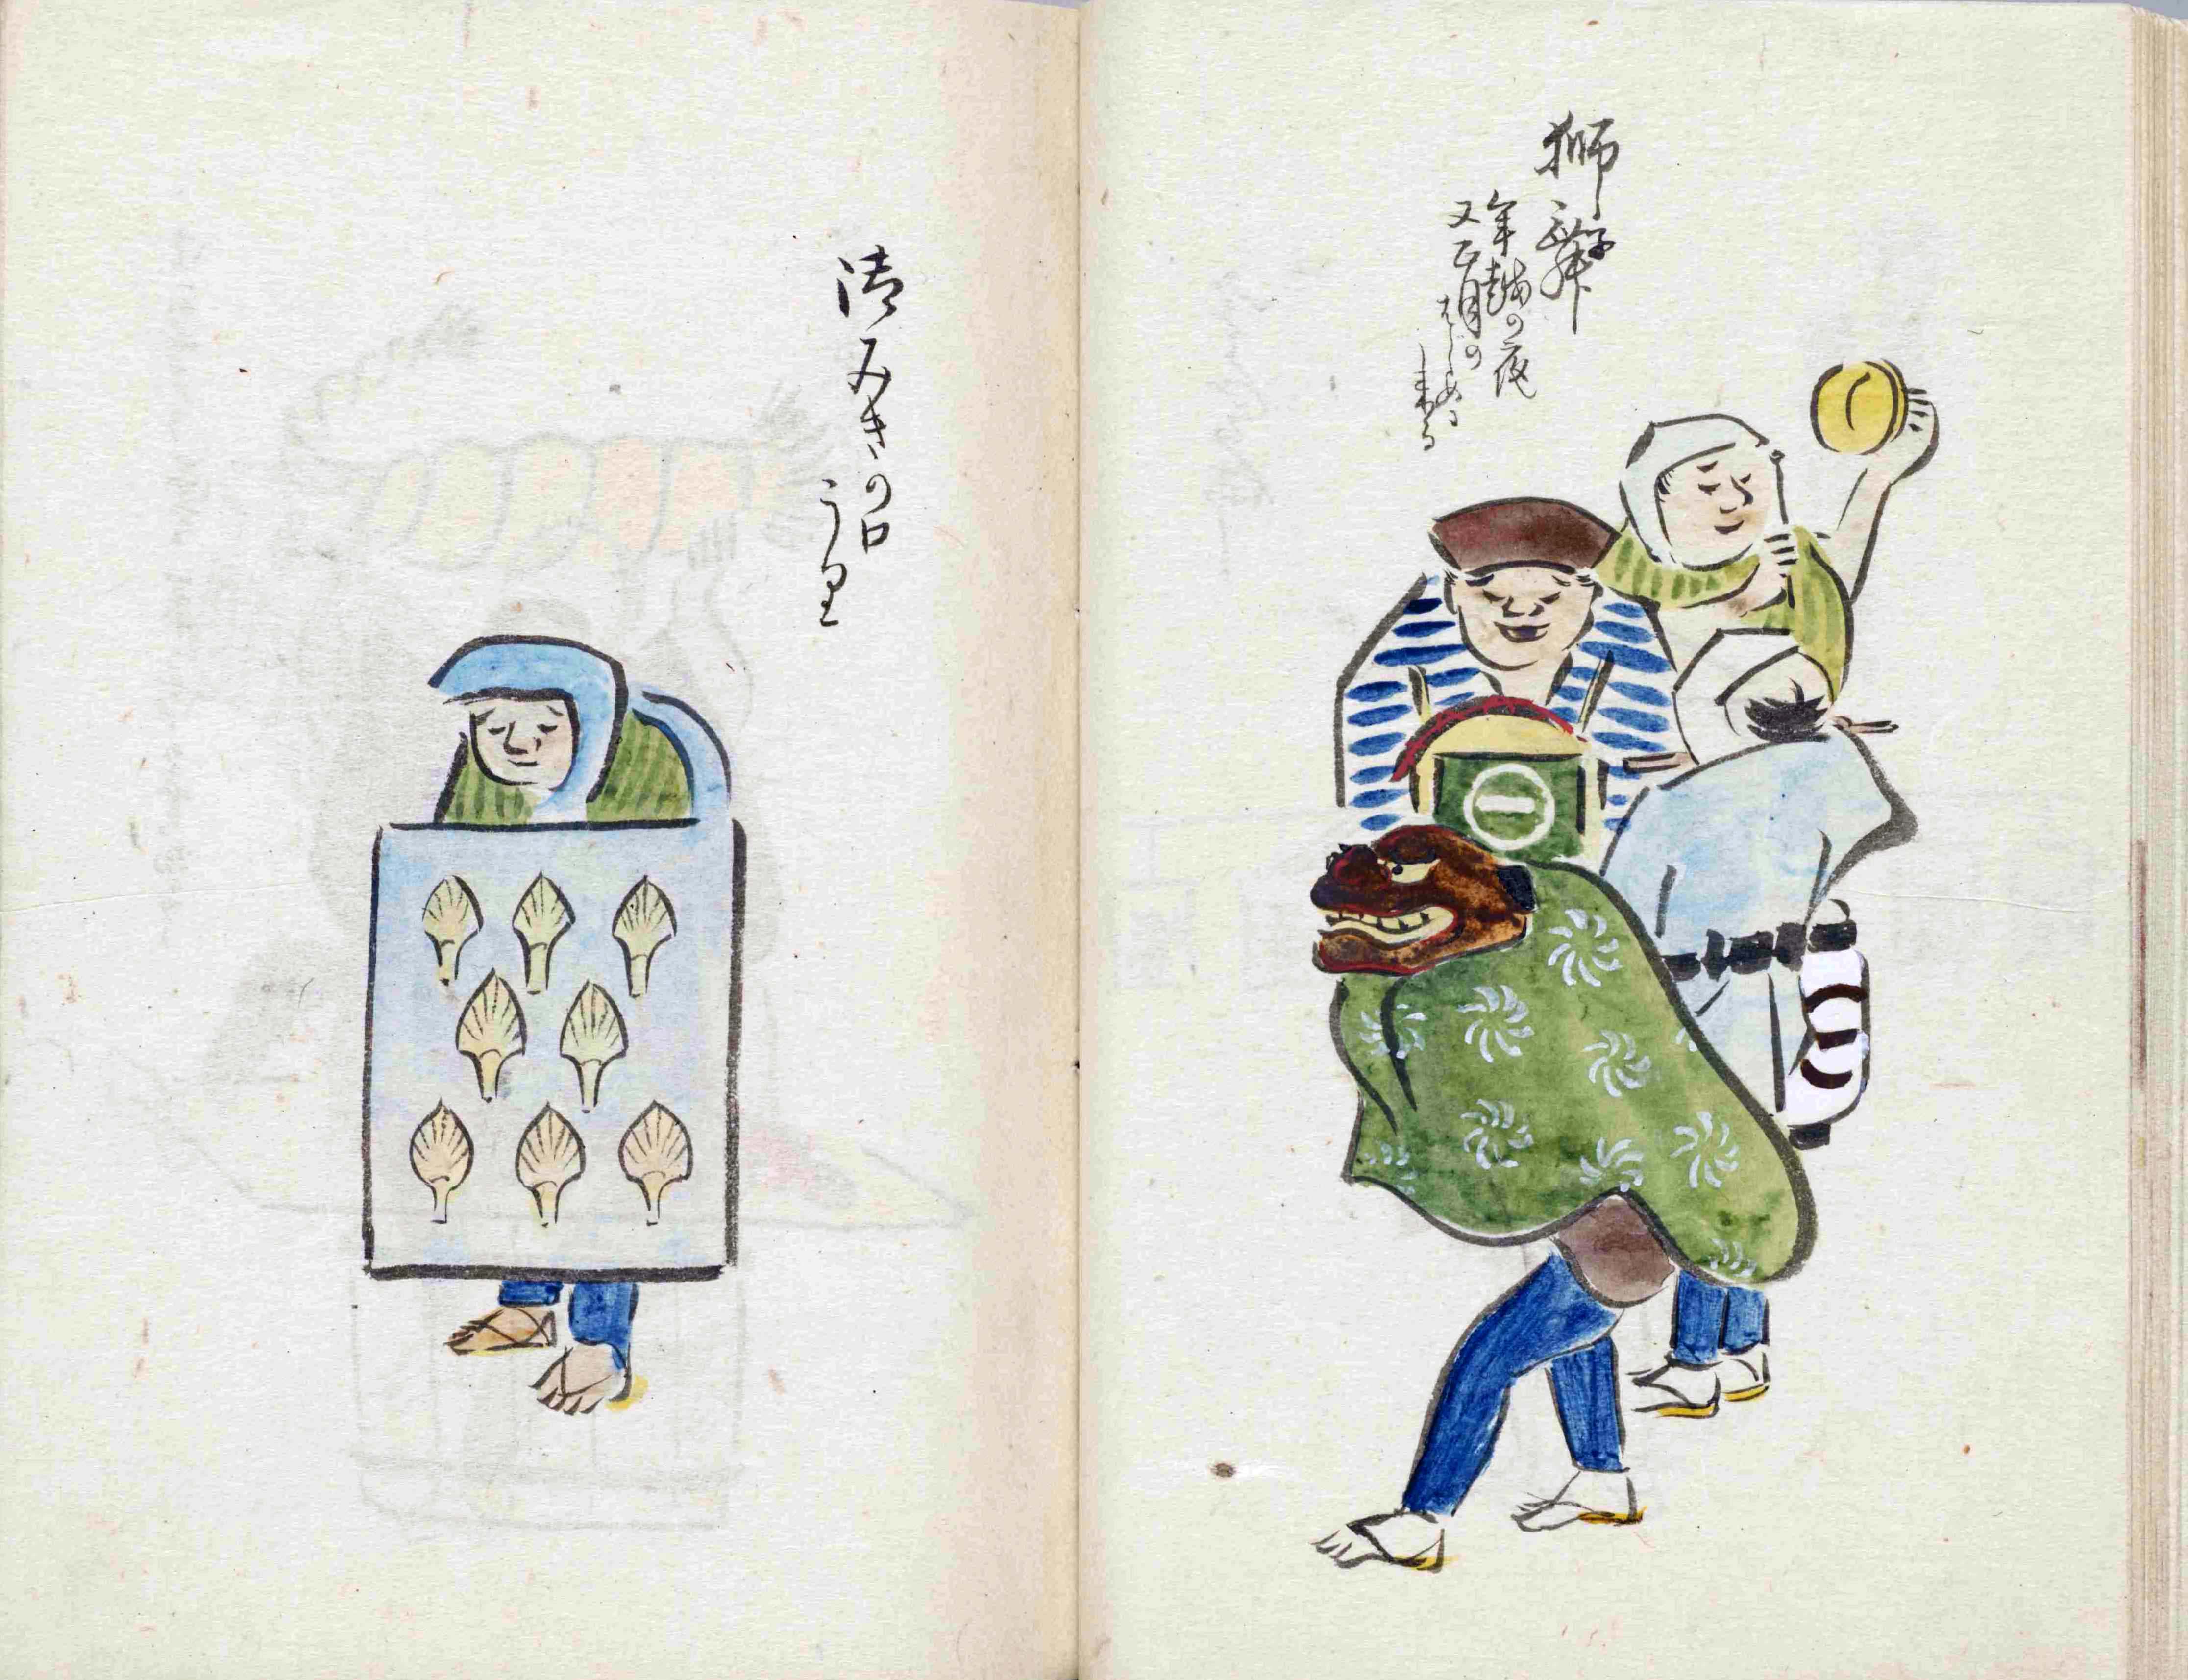 獅子舞
年越の夜
又正月の
はじめに
来る
御みきの口
うり